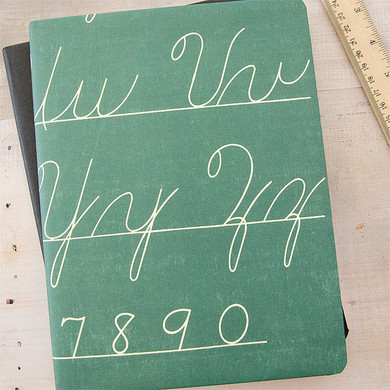 u Vv
Yy Zz
7 8 9 0